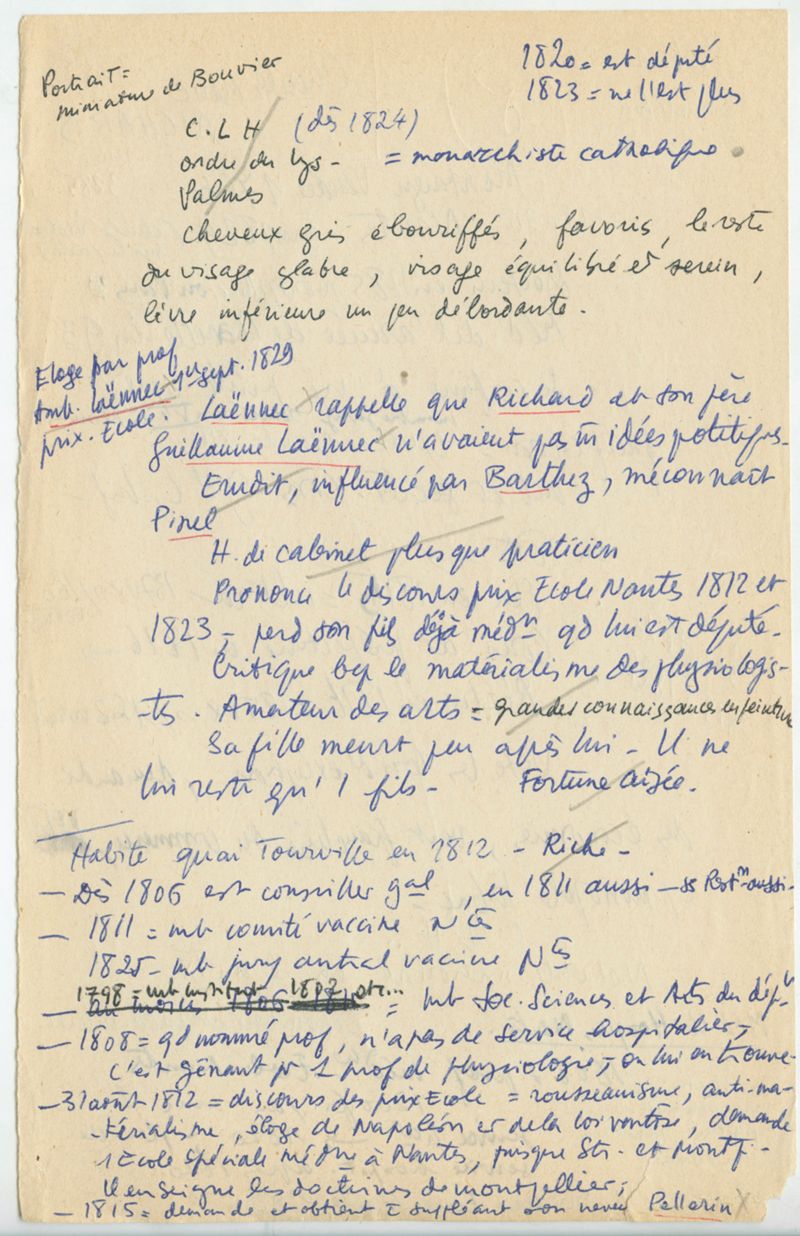 Portrait =
miniature de Bouvier
1820 = est député
1823 = ne l'est plus
C.L.H (dès 1824)
ordre du lys - = monarchiste catholique
Palmes
cheveux gris ébouriffés, favoris, le reste
du visage glabre, visage équilibré et serein,
lèvre inférieure un peu débordante.
Eloge par prof
Amb. Laënnec 1er sept. 1829
prix. Ecole.
Laënnec rappelle que Richard et son père
Guillaume Laënnec n'avaient pas m̄ idées politiqs.
Erudit, influencé par Barthez, méconnaît
Pinel
H. de cabinet plus que praticien
Prononce le discours prix Ecole Nantes 1812 et
1823 - perd son fils déjà médn qd lui est député.
Critique bcp le matérialisme des physiologis-
-tes. Amateur des arts = grandes connaissances en peinture
Sa fille meurt peu après lui - Il ne
lui reste qu'1 fils - Fortune aisée.
Habite quai Tourville en 1812 - Riche -
- Dès 1806 est conseiller gal, en 1811 aussi - ss Restn aussi -
- 1811 = mb comité vaccine Ntes
1825 - mb jury central vaccine Ntes
1798 = mb institut 1802 etc...
- au moins 1806 = mb Soc. Sciences et Arts du dépt
- 1808 = qd nommé prof, n'a pas de service hospitalier,
c'est gênant pr 1 prof de physiologie, - on lui en trouve -
- 31 août 1812 = discours des prix Ecole = rousseauisme, anti-ma-
-térialisme, éloge de Napoléon et de la loi ventôse, demande
1 Ecole Spéciale Médne à Nantes, puisque Str. et Montp.
Il enseigne les doctrines de Montpellier;
- 1815 = demande et obtient suppléant son neveu Pellerin